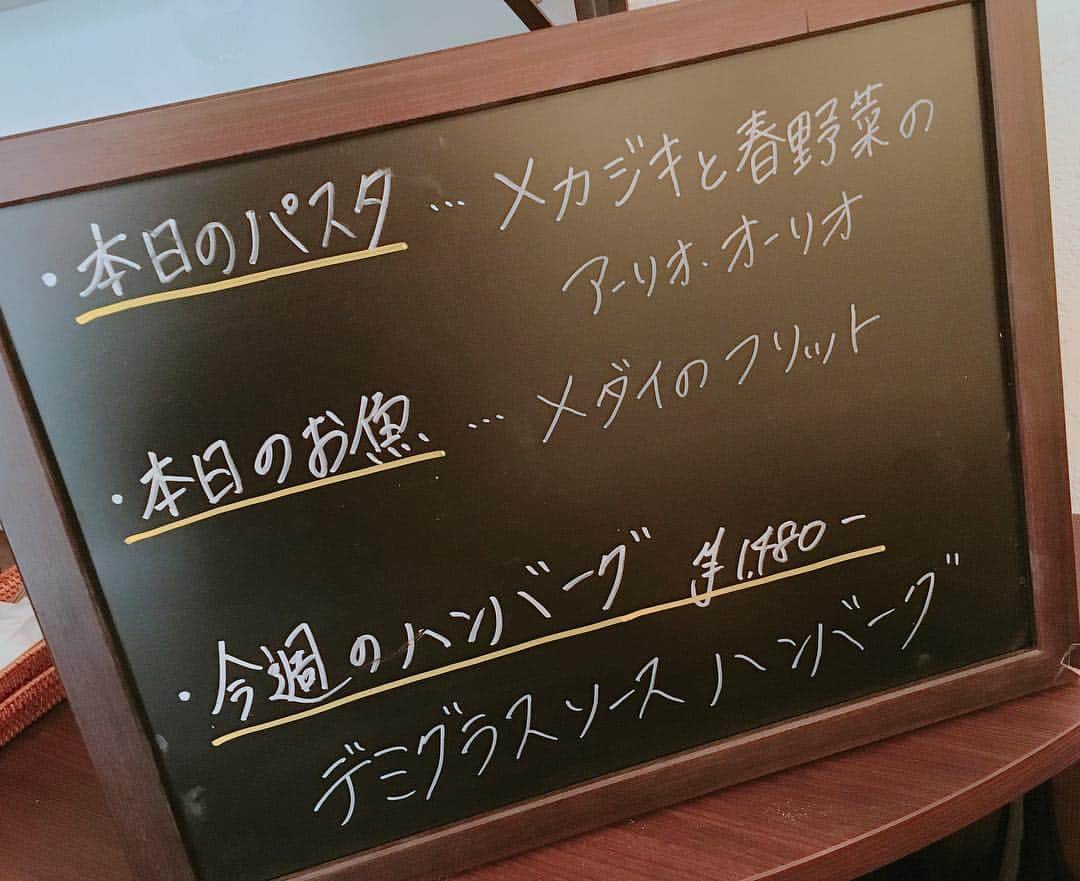 ・本日のパスタ … メカジキと春野菜の
アーリオ・オーリオ
・本日のお魚 … メダイのフリット
・今週のハンバーグ ¥1,480-
デミグラスソースハンバーグ